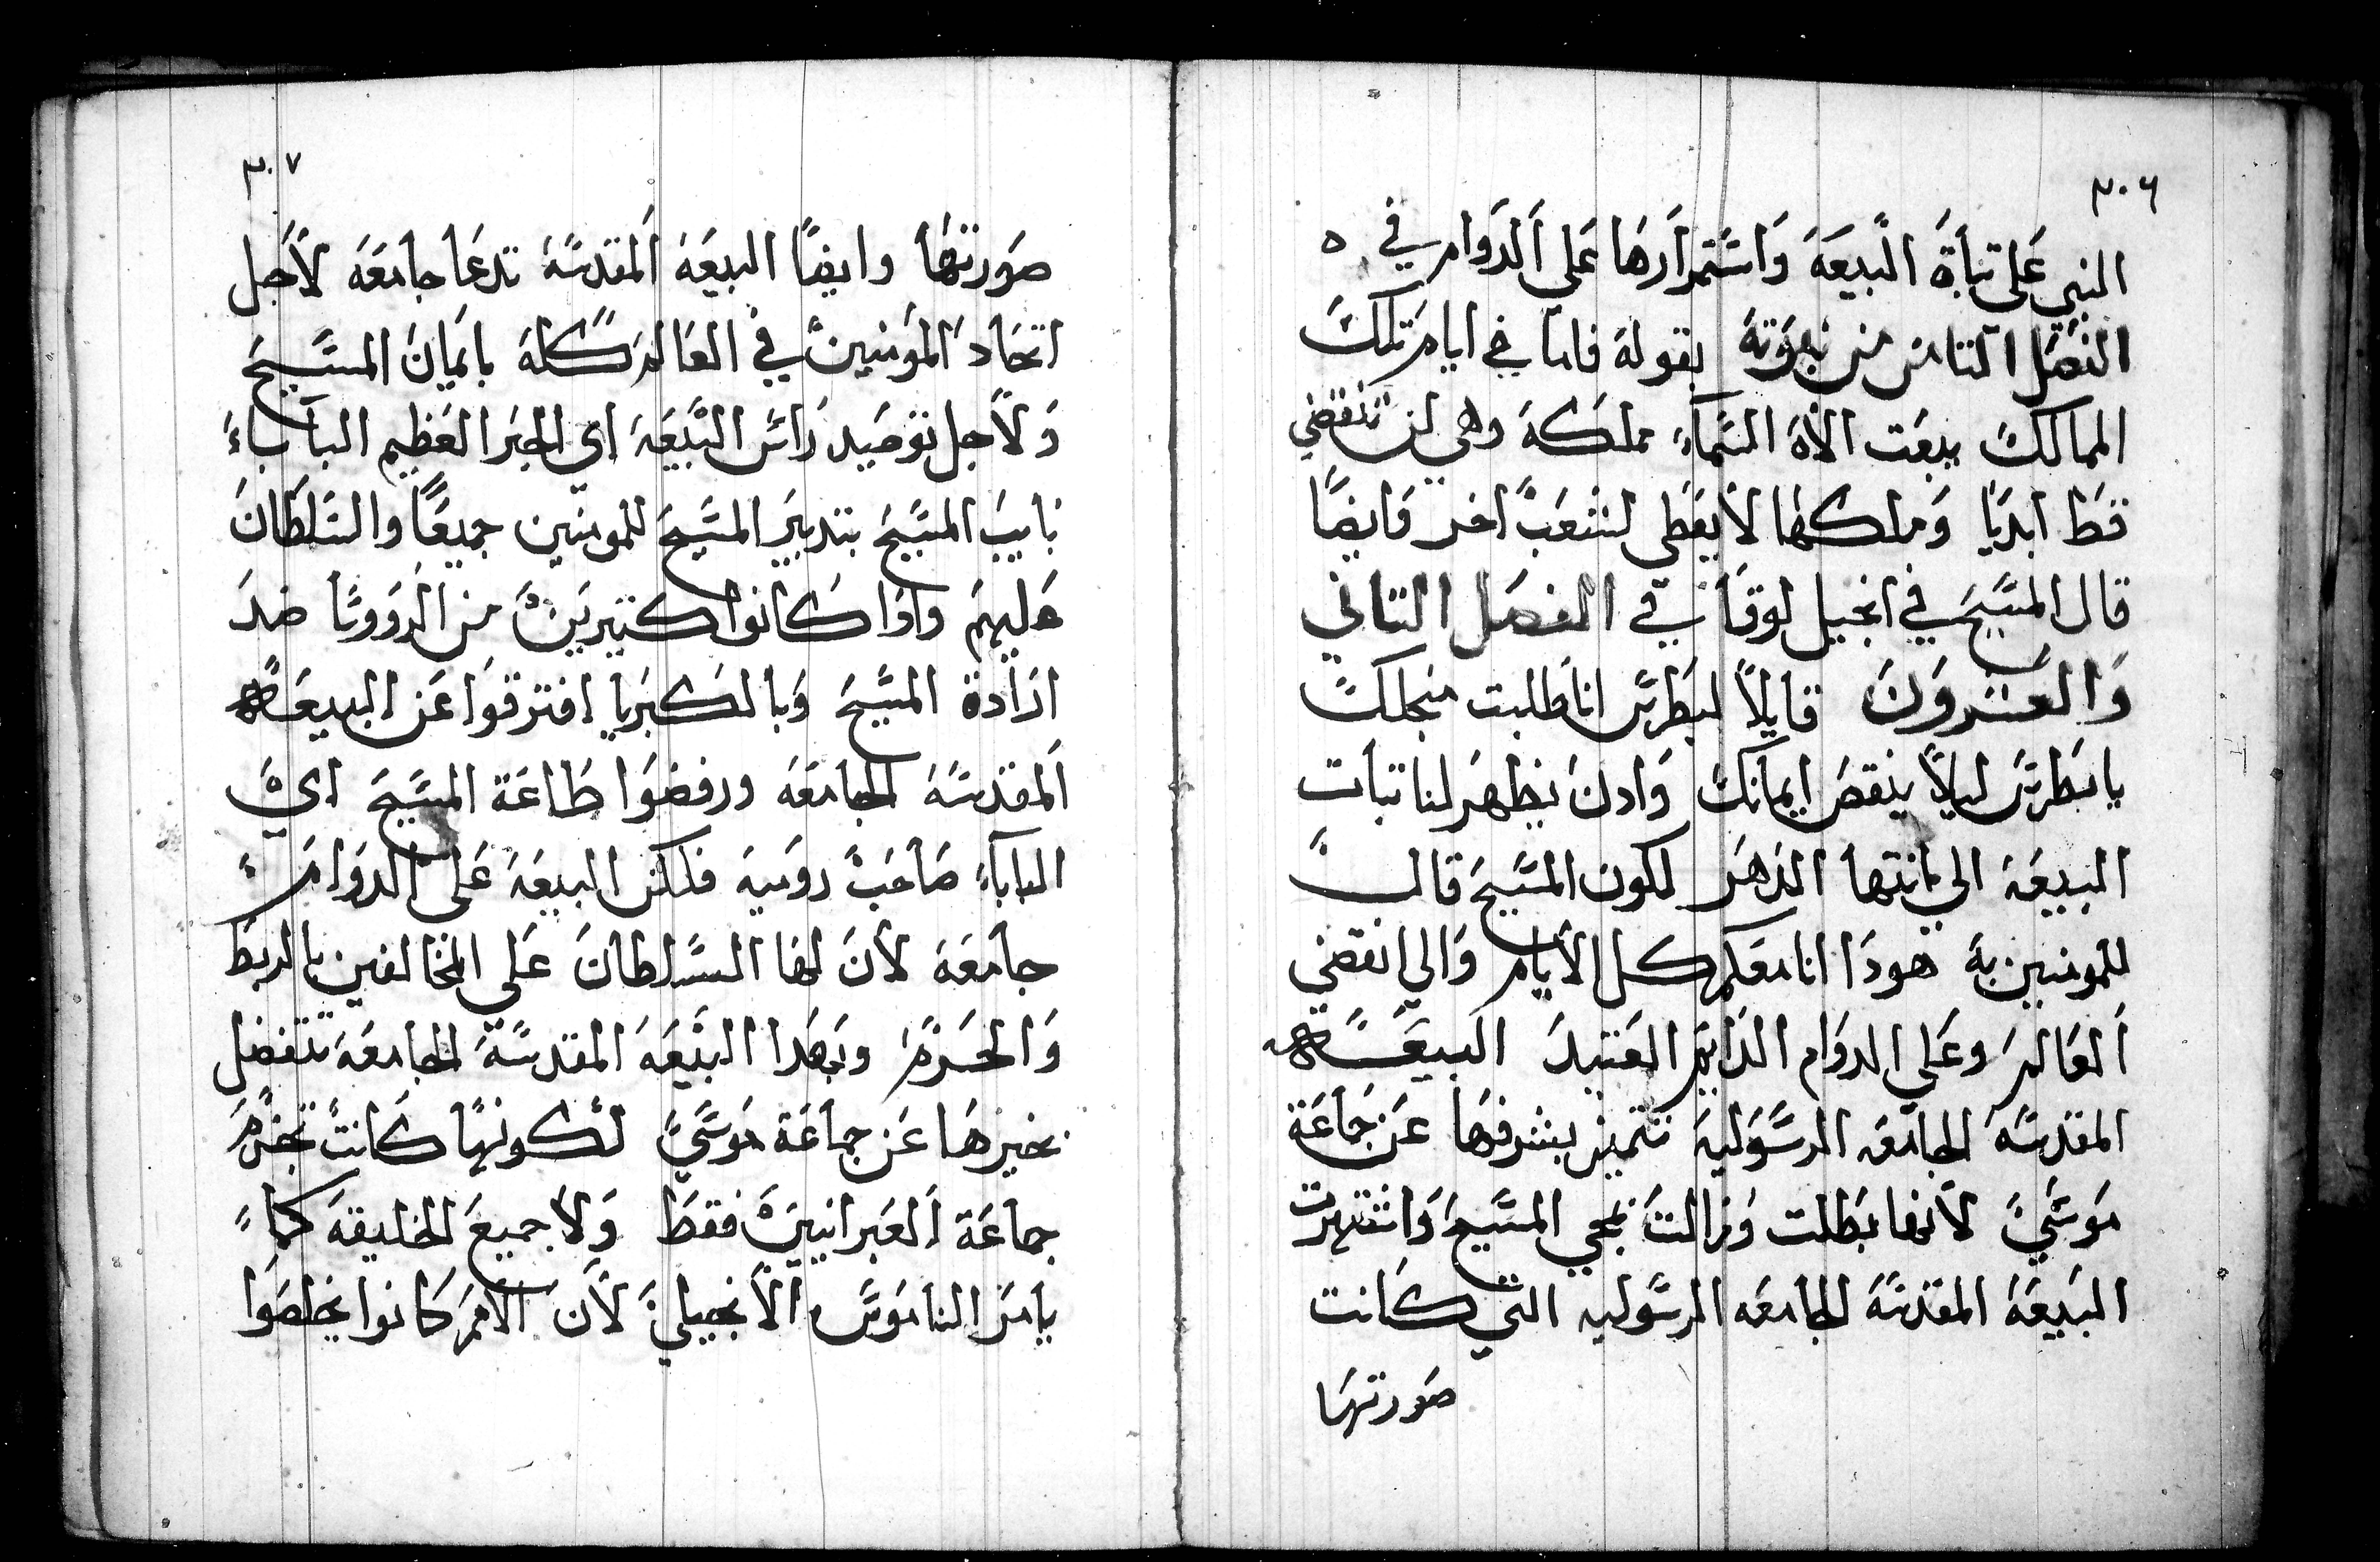 ٣٠٦
النبي علي تباة البيعه واستمرارها علي الدوام في ه
الفصل التامن من نبوته بقوله فاما في ايام تلك
الممالك يبعت الاه السماء مملكه وهي لن تنقضي
قط ابديا وملكها لا يعطي لشعب اخر وايضا
قال المسيح في انجيل لوقا في الفصل التاني
والعشرون قايلا لبطرس انا طلبت منجلك
يا بطرس ليلا ينقص ايمانك وادن يظهر لنا تبات
البيعه الي انتها الدهر لكون المسيح قال
للمومنين به هودا انا معكم كل الايام والي انقضي
العالم وعلي الدوام الدايم العتيد البيعه
المقدسه الجامعه الرسوليه تتميز بشرفها عن جماعة
موسي لانها بطلت وزالت بمجي المسيح واشتهرت
البيعه المقدسه الجامعه الرسوليه التي كانت
صورتها
٣٠٧
صورتها وايضا البيعه المقدسه تدعا جامعه لاجل
اتحاد المومنين في العالم كله بايمان المسيح
ولاجل توحيد رائس البيعه اي الحبر العظيم الباباء
نايب المسيح بتدبير المسيح للمومنين جميعا والسلطان
عليهم وادا كانوا كتيرين من الرووسا ضد
ارادة المسيح وبالكبريا افترقوا عن البيعه
المقدسه الجامعه ورفضوا طاعة المسيح اي
الباباء صاحب روميه فلكن البيعه علي الدوام
جامعه لان لها السلطان علي المخالفين بالربط
والحرم وبهدا البيعه المقدسه الجامعه تتفضل
بخيرها عن جماعة موسي لكونها كانت تحرم
جماعة العبرانيين فقط ولا جميع الخليقه كما
يامر الناموس الانجيلي لان الامم كانوا يخلصوا